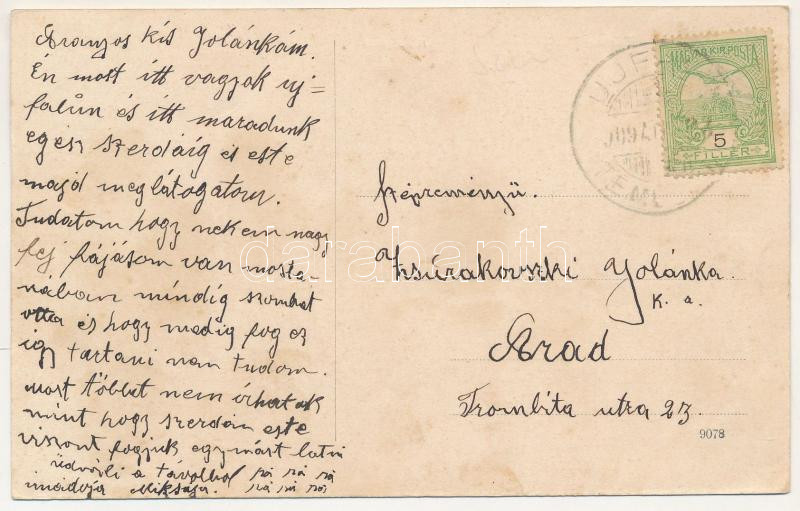 Aranyos kis Jolánkám.
Én most itt vagyok uj=
falún és itt maradunk
egész szerdáig és este
majd meglátogatom.
Tudatom hogy nekem nagy
fej fájásom van mosta-
nában mindig szombat
otta és hogy medig fog ez
igy tartani nem tudom.
most többet nem írhatok
mint hogy szerdán este
viszont fogjuk egymást latni
üdvözli a távolból pá pá pá
imádója Miksája. pá pá pá
MAGYAR KIR. POSTA
5
FILLÉR
UJF
909
TEM
Szépreményű.
Zsurakovszki Jolánka.
K. a.
Arad
Trombita utza 23.
9078
darabanth